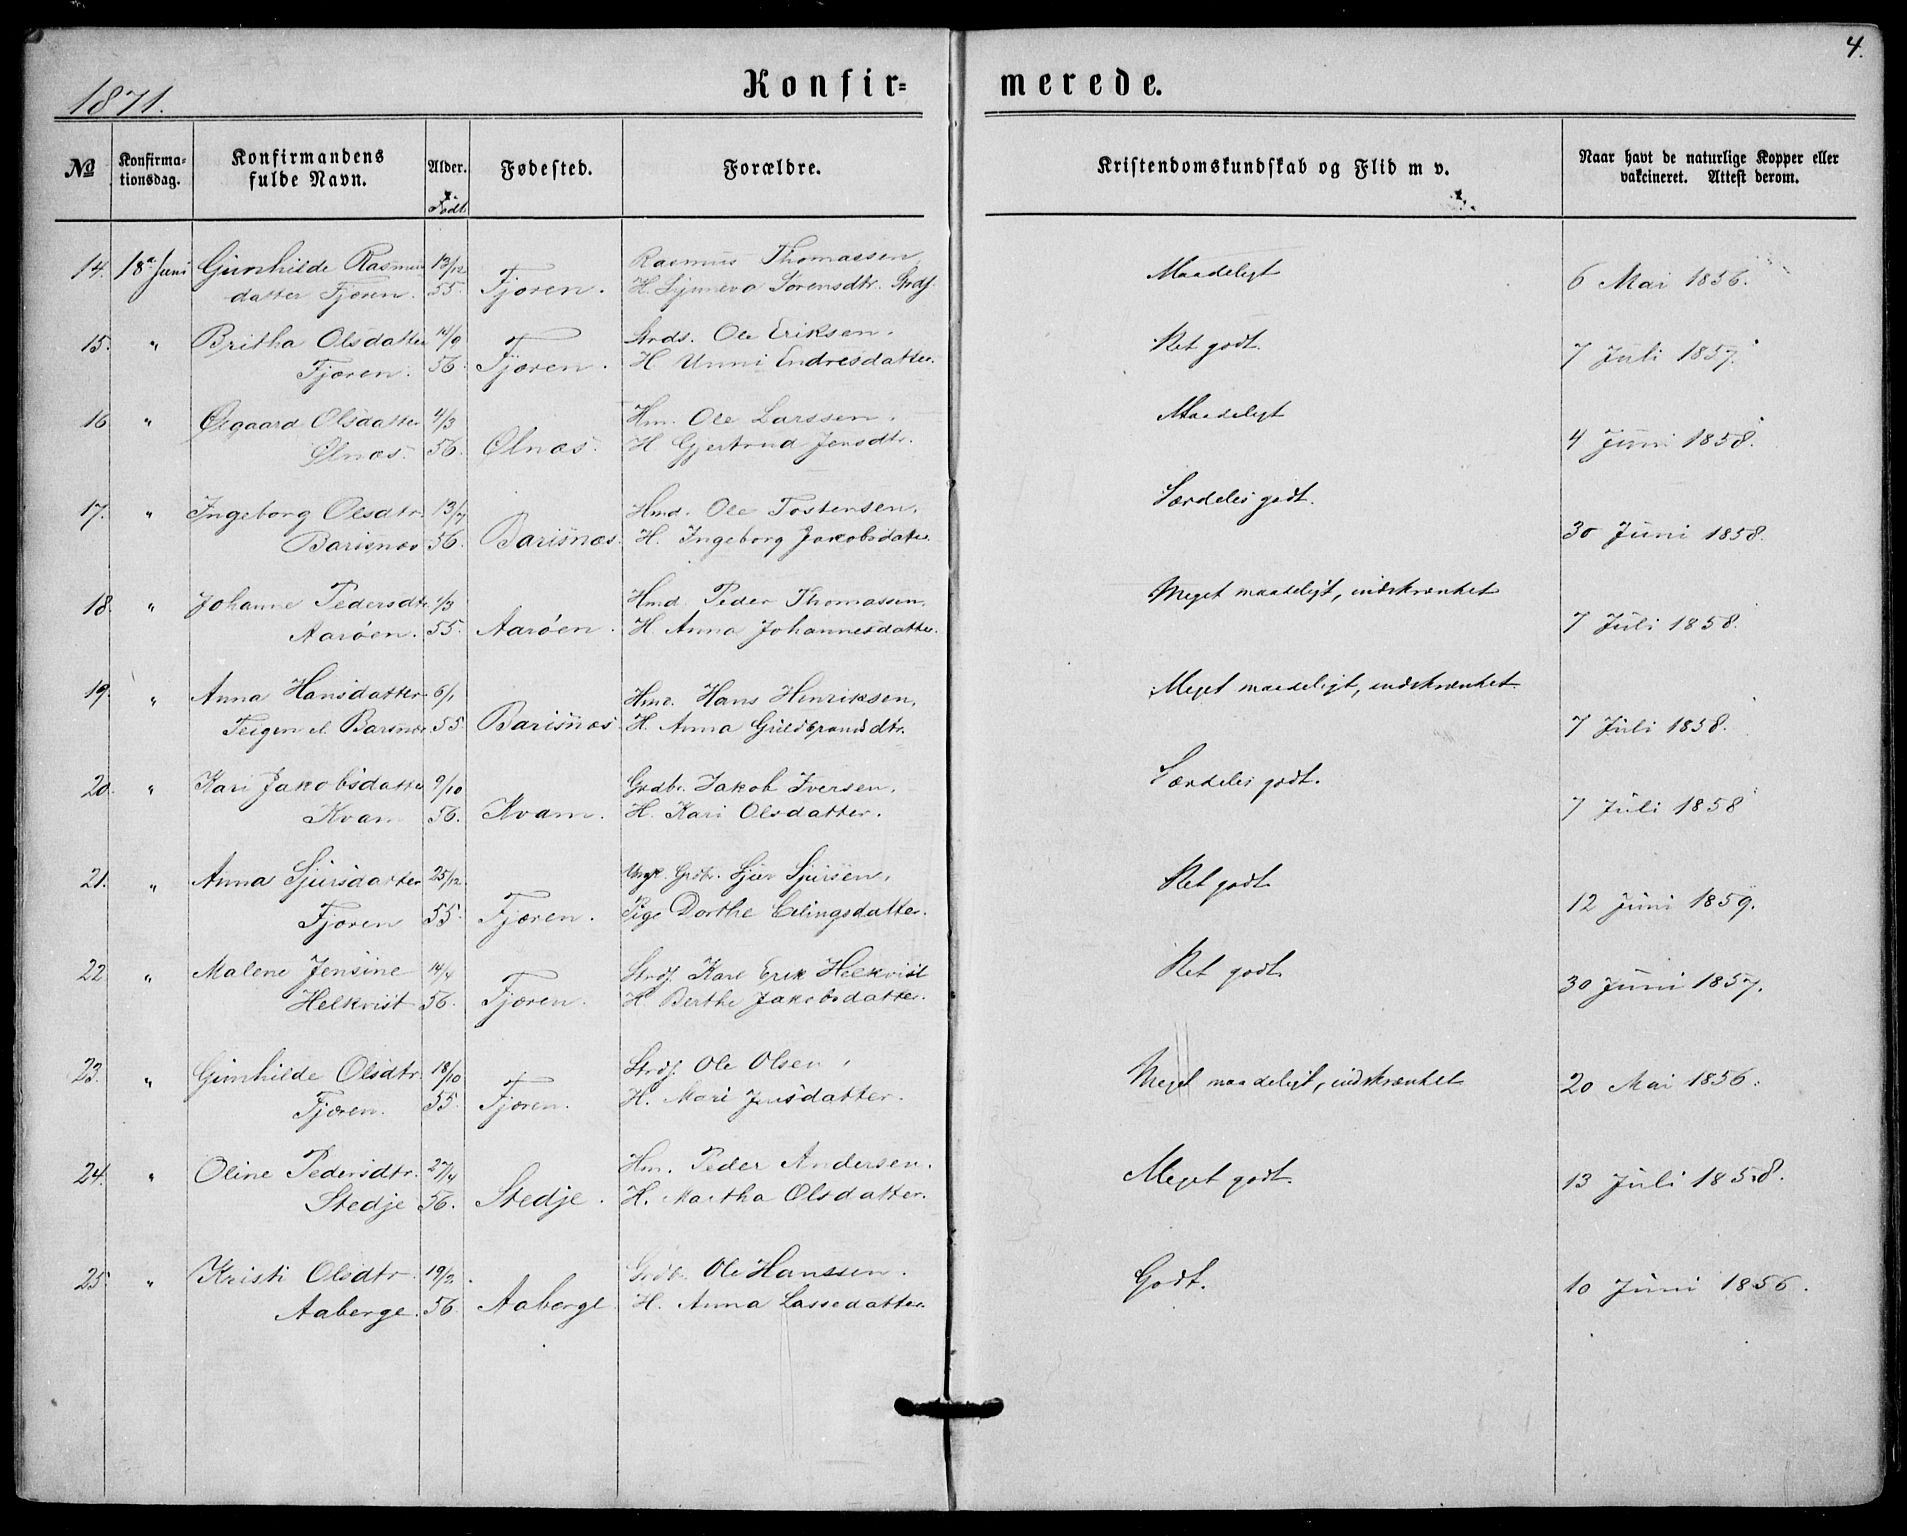 4.
1871.
Konfir=
merede.
No
Konfirma-
tionsdag.
Konfirmandens
fulde Navn.
Alder.
Født
Fødested.
Forældre.
Kristendomskundskab og Flid m v.
Naar havt de naturlige Kopper eller
vakcineret. Attest derom.
14. 18de Juni Gunhilde Rasmus 13/12 Rasmus Thomassen
datter Fjæren. 55. Fjæren. H. Synneva Sørensdtr. Strds.
Maadeligt 6 Mai 1856.
15. " Britha Olsdatter 14/9 Strds. Ole Eriksen.
Fjæren. 56. Fjæren. H Unni Endresdatter.
Ret godt. 7 Juli 1857.
16 " Øigaard Olsdatter 4/3 Hm. Ole Larssen.
Ølnæs. 56. Ølnæs. H Gjertrud Jensdtr.
Maadeligt 4 Juni 1858.
17. " Ingeborg Olsdtr. 13/7 Hmd. Ole Tostensen.
Barisnæs 56. Barisnæs. H. Ingeborg Jakobsdatter.
Særdeles godt. 30 Juni 1858.
18. " Johanne Pedersdtr 1/3 Hmd. Peder Thomassen.
Aarøen. 55. Aarøen. H Anna Johannesdatter.
Meget maadeligt, indskrænket 7 Juli 1858.
19. " Anna Hansdatter 6/1 Hmd. Hans Henriksen,
Teigen el. Barsnæs 55 Barisnæs H. Anna Guldbrandsdtr.
Meget maadeligt, indskrænket. 7 Juli 1858.
20. " Kari Jakobsdatter 9/10 Grdbr. Jakob Iversen.
Kvam 56. Kvam. H. Kari Olsdatter.
Særdeles godt. 7 Juli 1858
21. " Anna Sjursdatter 25/12. Ungk. Grdbr. Sjur Sjursen.
Fjæren 55. Fjæren. Pige Dorthe Erlingsdatter.
Ret godt 12 Juni 1859.
22 " Malene Jensine 14/4 Strds. Karl Erik Helkvist
Helkvist 56. Fjæren. H. Berthe Jakobsdatter.
Ret godt. 30 Juni 1857.
23. " Gunhilde Olsdtr. 18/10 Strds. Ole Olsen,
Fjæren. 55. Fjæren. H. Mari Jensdatter.
Meget maadeligt, indskrænket 20 Mai 1856.
24. " Oline Pedersdtr. 27/4 Hm. Peder Andersen.
Stedje 56. Stedje. H. Martha Olsdatter.
Meget godt. 13 Juli 1858.
25. " Kristi Olsdtr. 19/2. Grdbr. Ole Hanssen.
Aaberge. 56. Aaberge H. Anna Lassedatter.
Godt. 10 Juni 1856.